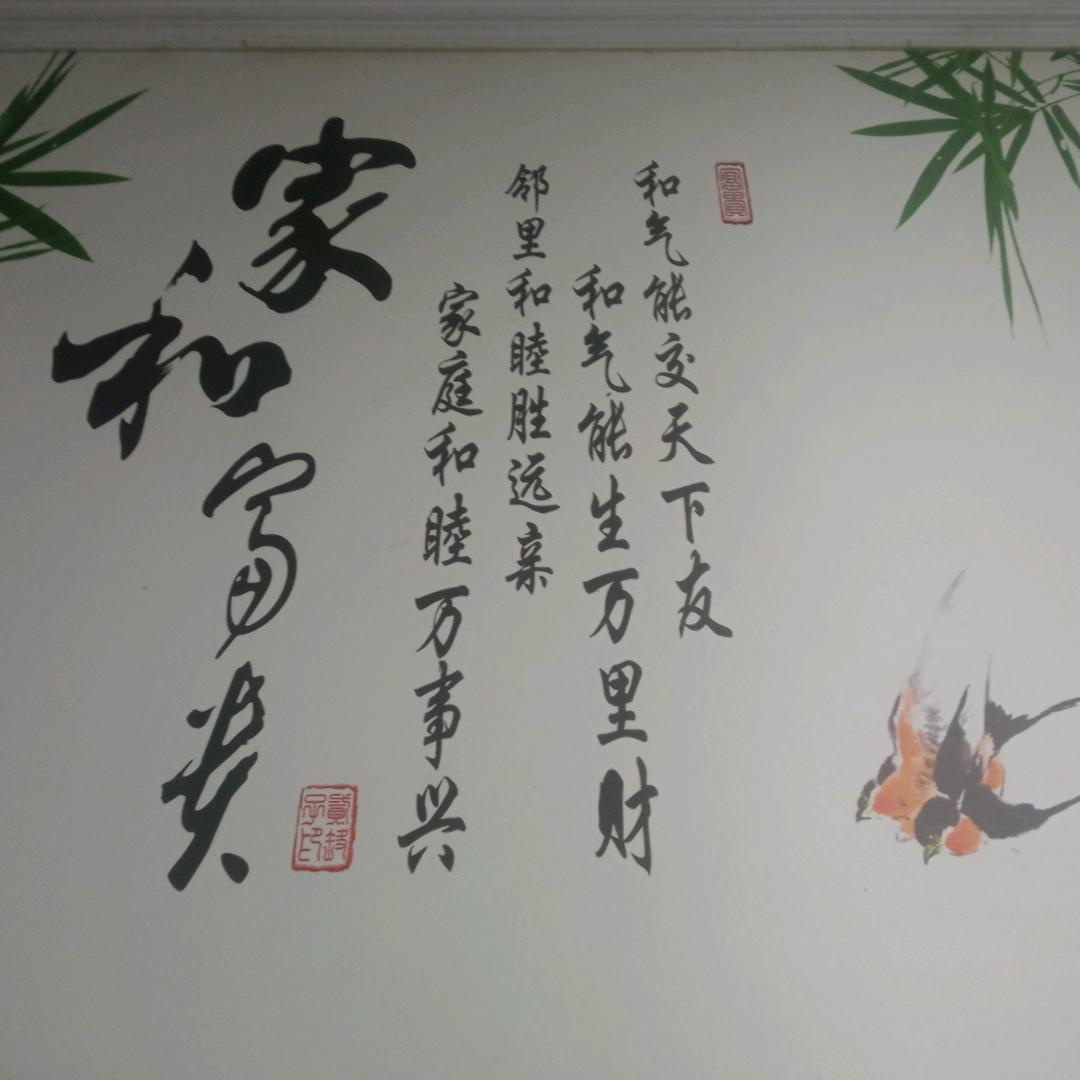 富貴
和气能交天下友
和气能生万里财
邻里和睦胜远亲
家庭和睦万事兴
家和富贵